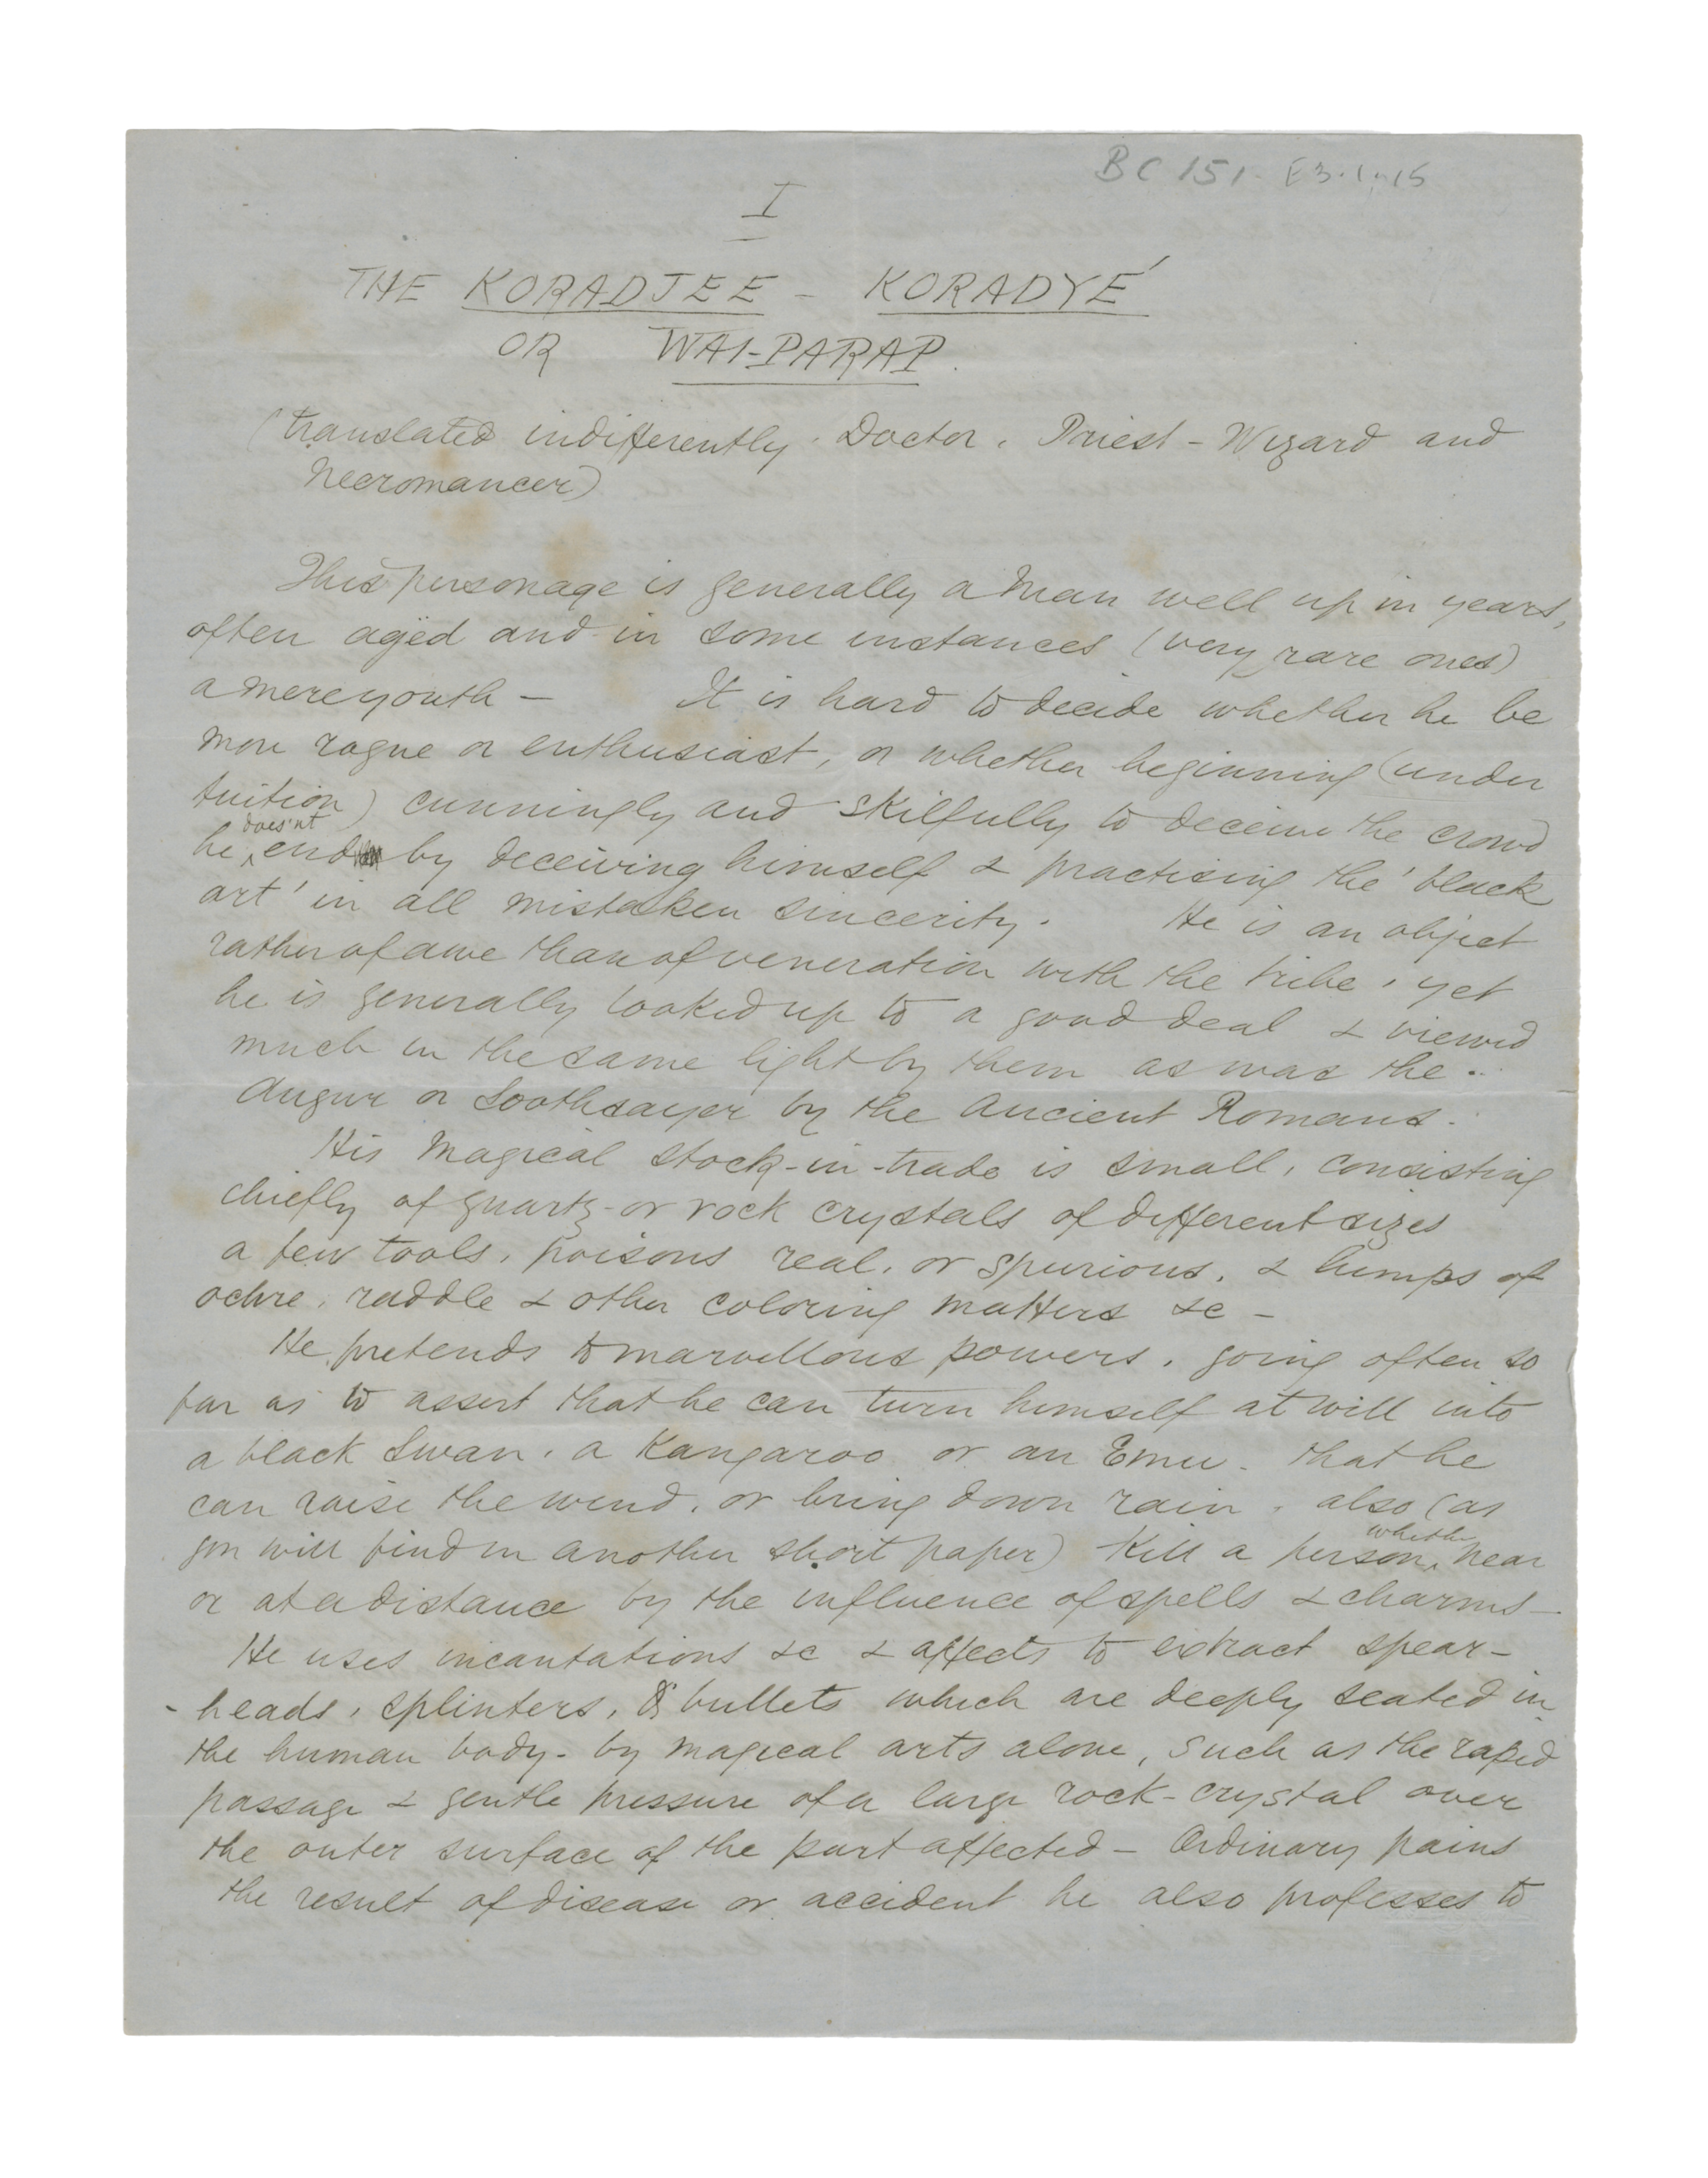 BC 151. E3.1.15
I
THE KORADJEE - KORADYÉ
OR WAI-PARAP.
(translated indifferently. Doctor, Priest - Wizard and
Necromancer)
This personage is generally a man well up in years,
often aged and in some instances (very rare ones)
a mere youth - It is hard to decide whether he be
more rogue or enthusiast, or whether beginning (under
tuition) cunningly and skilfully to deceive the crowd
he does'nt end by deceiving himself & practising the 'black
art' in all mistaken sincerity. He is an object
rather of awe than of veneration with the tribe, yet
he is generally looked up to a good deal & viewed
much in the same light by them as was the
Augur or Soothsayer by the Ancient Romans.
His magical stock-in-trade is small, consisting
chiefly of quartz- or rock crystals of different sizes
a few tools, poisons real, or spurious, & lumps of
ochre, raddle & other coloring matters &c -
He pretends to marvellous powers, going often so
far as to assert that he can turn himself at will into
a black Swan, a Kangaroo or an Emu - that he
can raise the wind, or bring down rain, also (as
you will find in another short paper) Kill a person, whether near
or at a distance by the influence of spells & charms -
He uses incantations &c & affects to extract spear-
- heads, splinters, & bullets which are deeply seated in
the human body - by magical arts alone, such as the rapid
passage & gentle pressure of a large rock-crystal over
the outer surface of the part affected - Ordinary pains
the result of disease or accident he also professes to